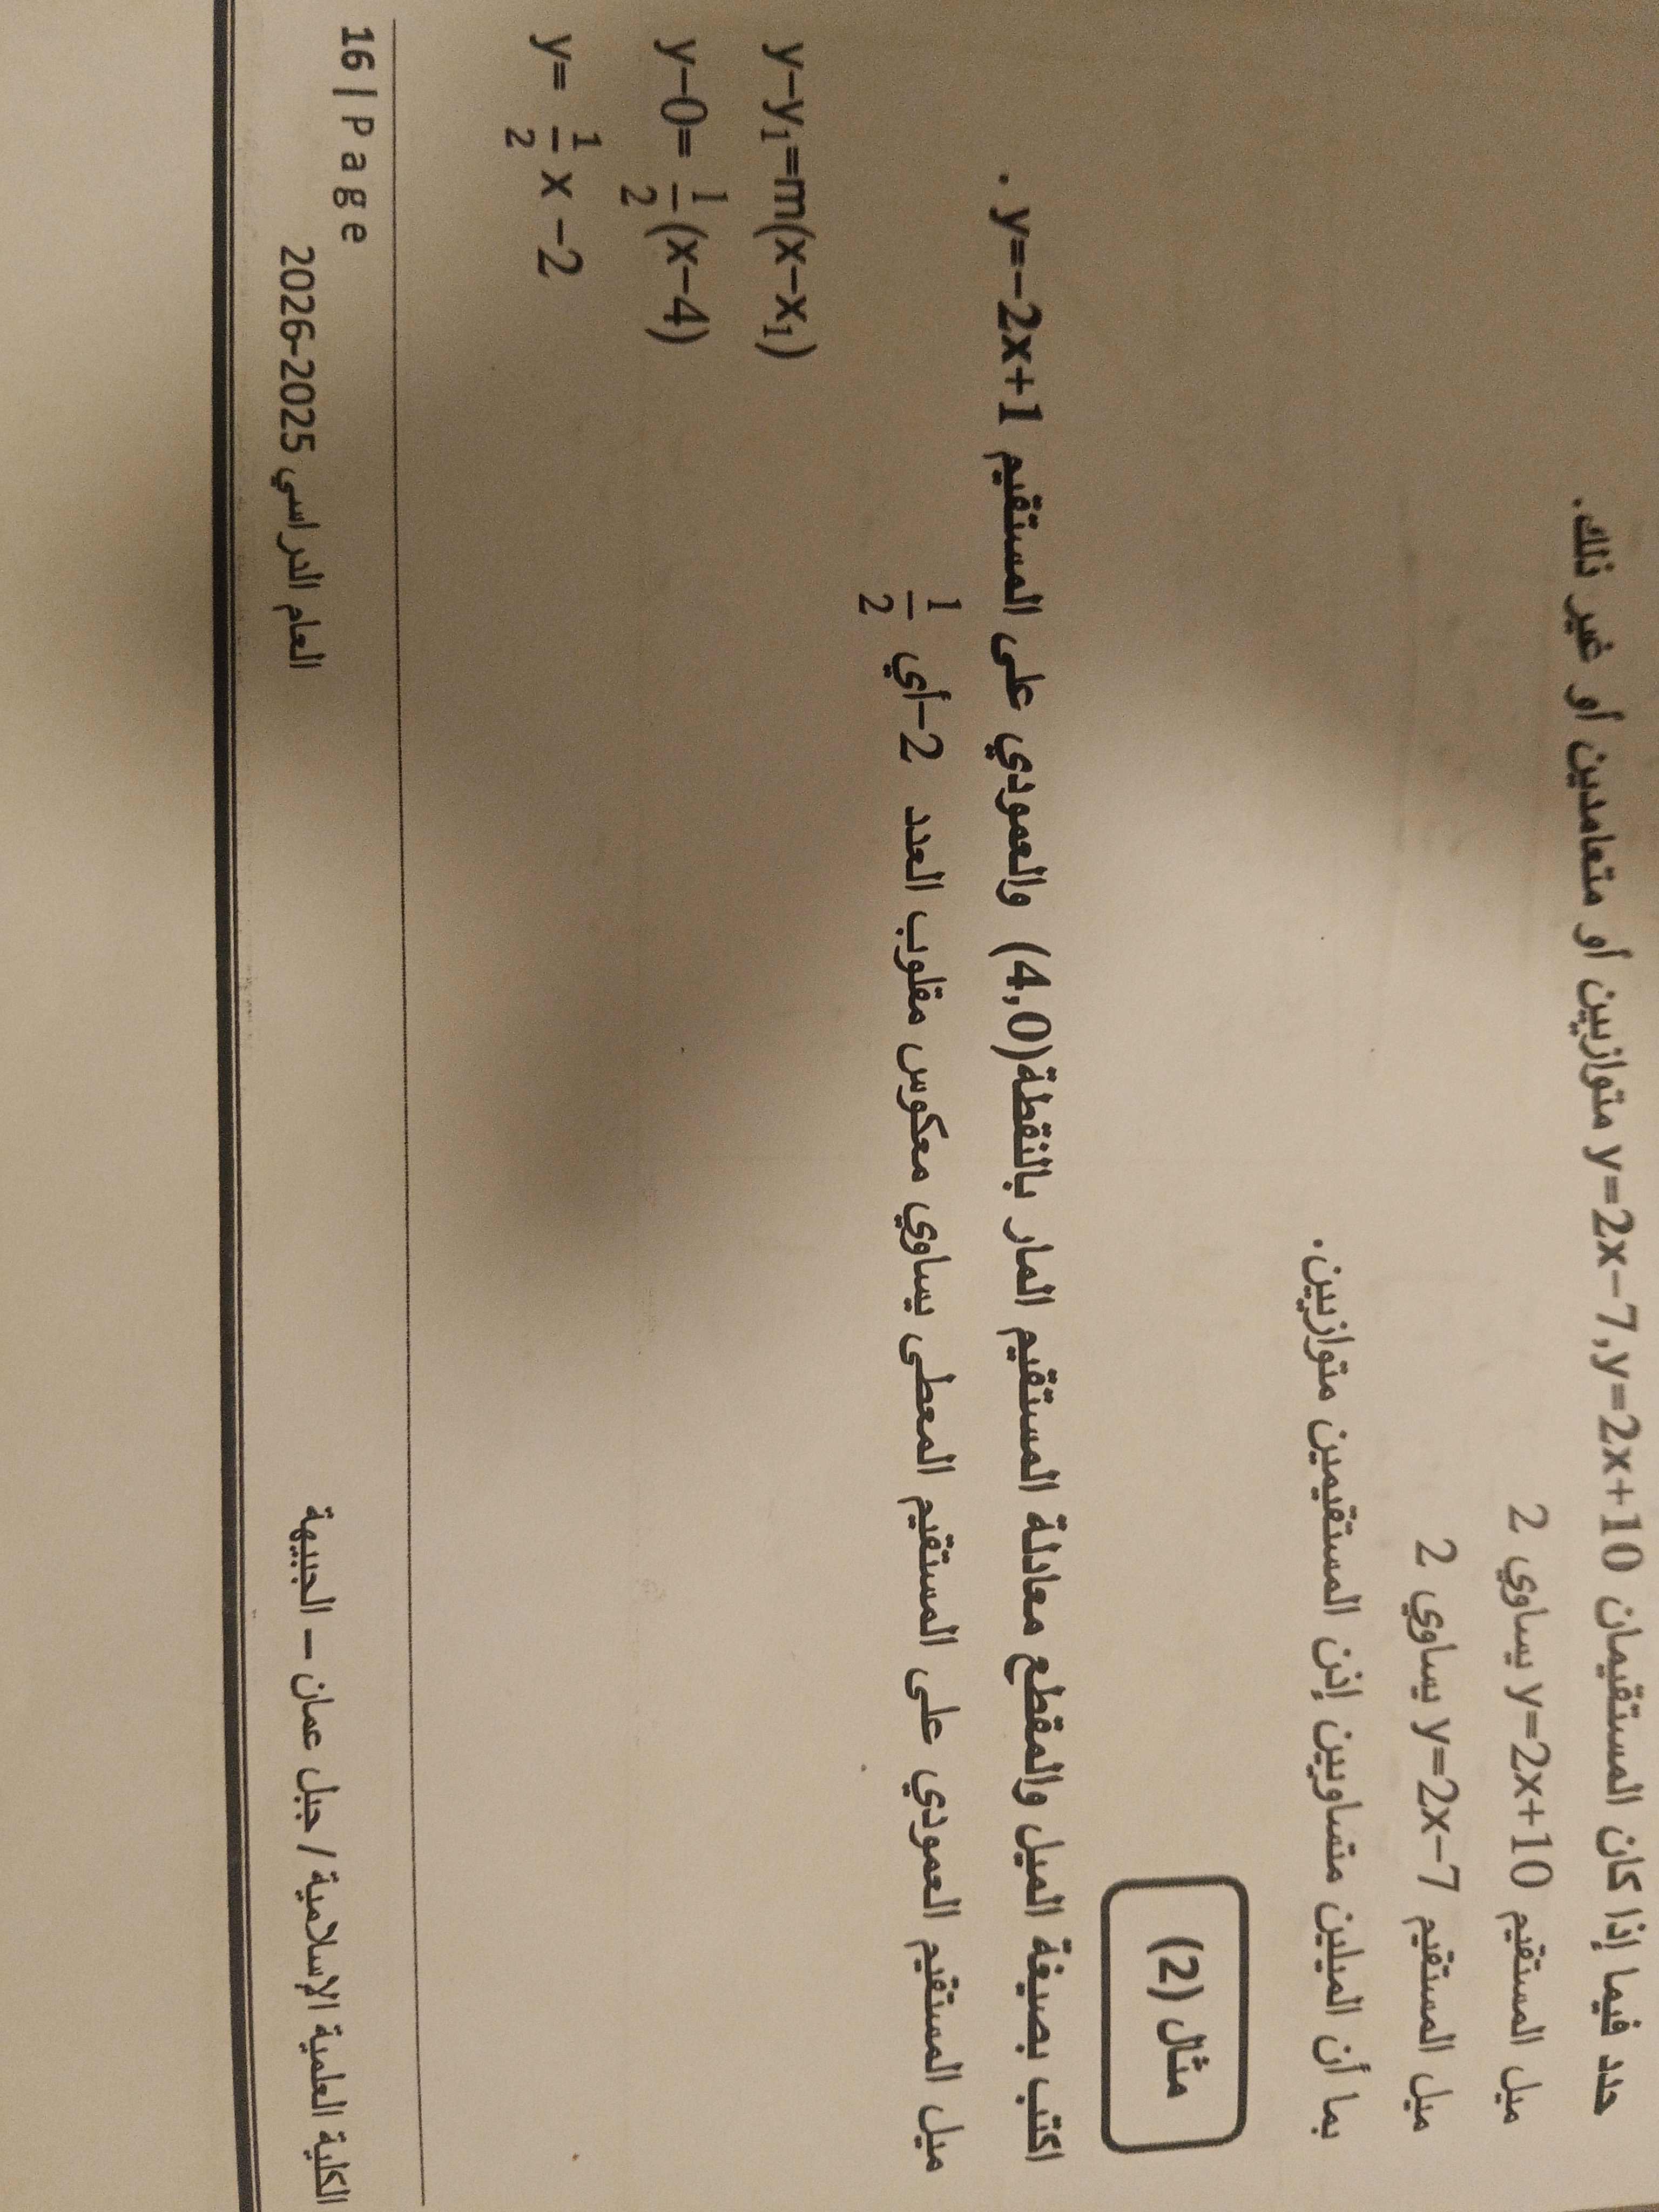 حدد فيما إذا كان المستقيمان y=2x−7,y=2x+10 متوازيين أو متعامدين أو غير ذلك.
ميل المستقيم y=2x+10 يساوي 2
ميل المستقيم y=2x−7 يساوي 2
بما أن الميلين متساويين إذن المستقيمين متوازيين.
مثال (2)
اكتب بصيغة الميل والمقطع معادلة المستقيم المار بالنقطة(4,0) والعمودي على المستقيم y=−2x+1 .
ميل المستقيم العمودي على المستقيم المعطى يساوي معكوس مقلوب العدد −2 أي 1/2
y−y₁=m(x−x₁)
y−0= 1/2 (x−4)
y= 1/2 x −2
16 | Page
الكلية العلمية الإسلامية / جبل عمان – الجبيهة العام الدراسي 2025-2026